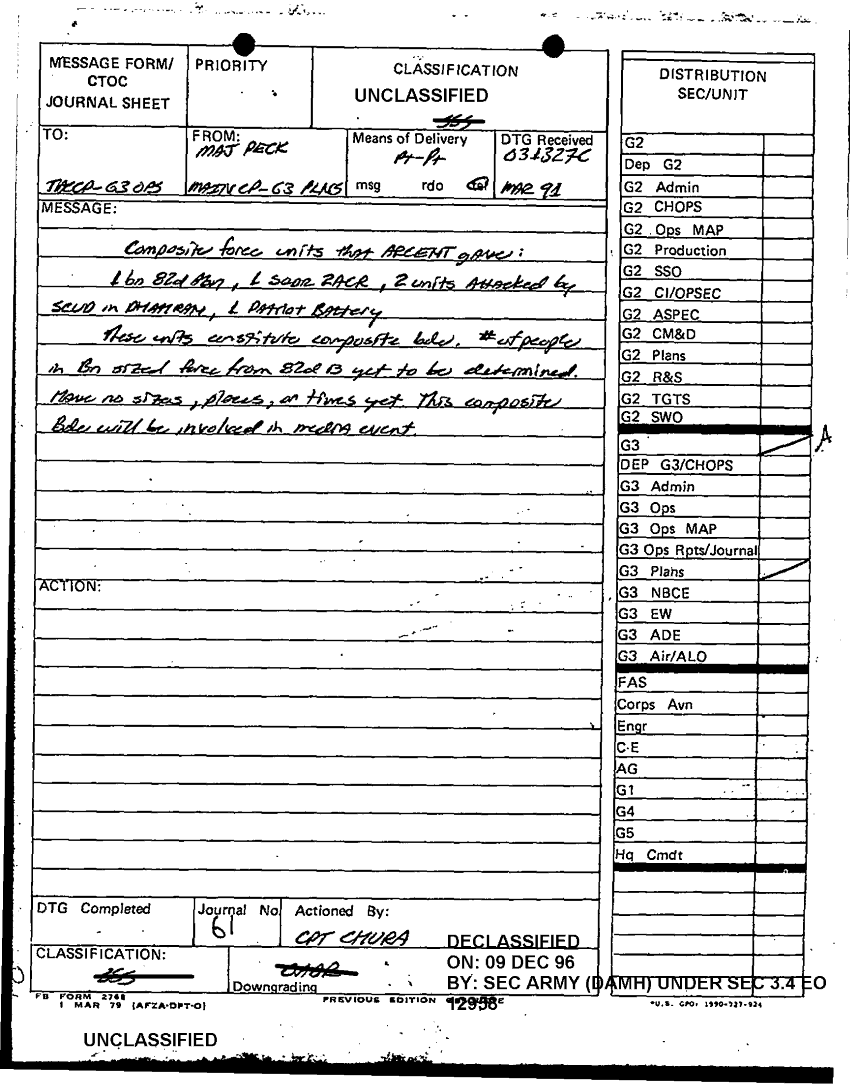 MESSAGE FORM/
CTOC
JOURNAL SHEET
PRIORITY
CLASSIFICATION
UNCLASSIFIED
TO:
TACCP-G3 OPS
FROM:
MAJ PECK
MAIN CP-G3 PLNS
Means of Delivery
msg rdo
DTG Received
031327C
MAR 91
MESSAGE:
Composite force units that ARCENT gave:
1 bn 82d Abn, 1 sqdr 2ACR, 2 units Attacked by
SCUD in DHAHRAN, 1 Patriot Battery
These units constitute composite bde. # of people
in Bn sized force from 82d is yet to be determined.
Have no sizes, places, or times yet. This composite
Bde will be involved in media event.
ACTION:
DTG Completed
Journal No.
61
Actioned By:
CPT CHURA
CLASSIFICATION:
Downgrading
DECLASSIFIED
ON: 09 DEC 96
BY: SEC ARMY (DAMH) UNDER SEC 3.4 EO
12958
FB FORM 2768
1 MAR 79 (AFZA-DPT-O)
PREVIOUS EDITION
*U.S. GPO: 1990-727-924
UNCLASSIFIED
DISTRIBUTION
SEC/UNIT
G2
Dep G2
G2 Admin
G2 CHOPS
G2 Ops MAP
G2 Production
G2 SSO
G2 CI/OPSEC
G2 ASPEC
G2 CM&D
G2 Plans
G2 R&S
G2 TGTS
G2 SWO
G3
A
DEP G3/CHOPS
G3 Admin
G3 Ops
G3 Ops MAP
G3 Ops Rpts/Journal
G3 Plans
G3 NBCE
G3 EW
G3 ADE
G3 Air/ALO
FAS
Corps Avn
Engr
C-E
AG
G1
G4
G5
Hq Cmdt